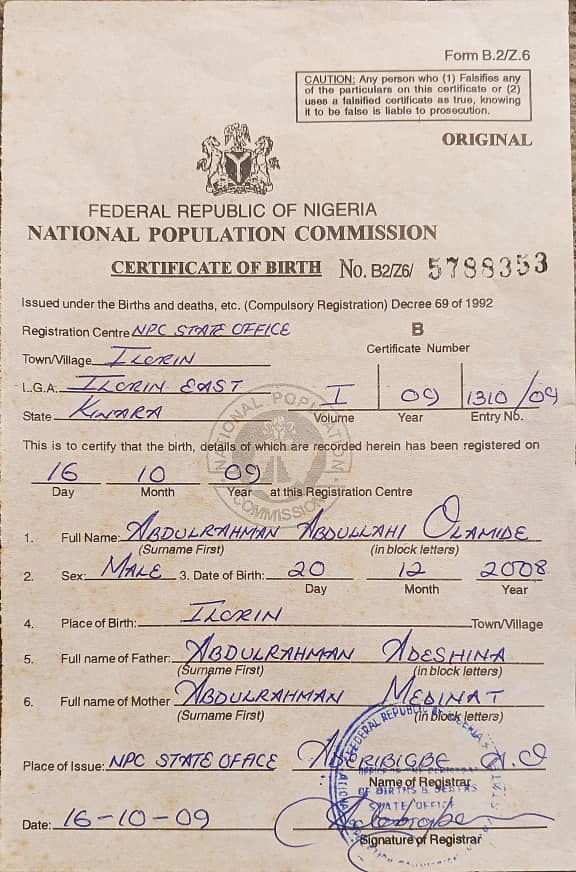 Form B.2/Z.6
CAUTION: Any person who (1) Falsifies any
of the particulars on this certificate or (2)
uses a falsified certificate as true, knowing
it to be false is liable to prosecution.
ORIGINAL
FEDERAL REPUBLIC OF NIGERIA
NATIONAL POPULATION COMMISSION
CERTIFICATE OF BIRTH No. B2/Z6/ 5788353
Issued under the Births and deaths, etc. (Compulsory Registration) Decree 69 of 1992
Registration Centre NPC STATE OFFICE B
Certificate Number
Town/Village ILORIN
L.G.A. ILORIN EAST I 09 1310/09
State KWARA Volume Year Entry No.
NATIONAL POPULATION COMMISSION
This is to certify that the birth, details of which are recorded herein has been registered on
16 10 09
Day Month Year at this Registration Centre
1. Full Name: ABDULRAHMAN ABDULLAHI OLAMIDE
(Surname First) (in block letters)
2. Sex: MALE 3. Date of Birth: 20 12 2008
Day Month Year
4. Place of Birth: ILORIN Town/Village
5. Full name of Father: ABDULRAHMAN ADESHINA
(Surname First) (in block letters)
6. Full name of Mother ABDULRAHMAN MEDINAT
(Surname First) (in block letters)
Place of Issue: NPC STATE OFFICE ADERIBIGBE A.O
Name of Registrar
OF BIRTHS &
STATE OFFICE
Date: 16-10-09
Signature of Registrar